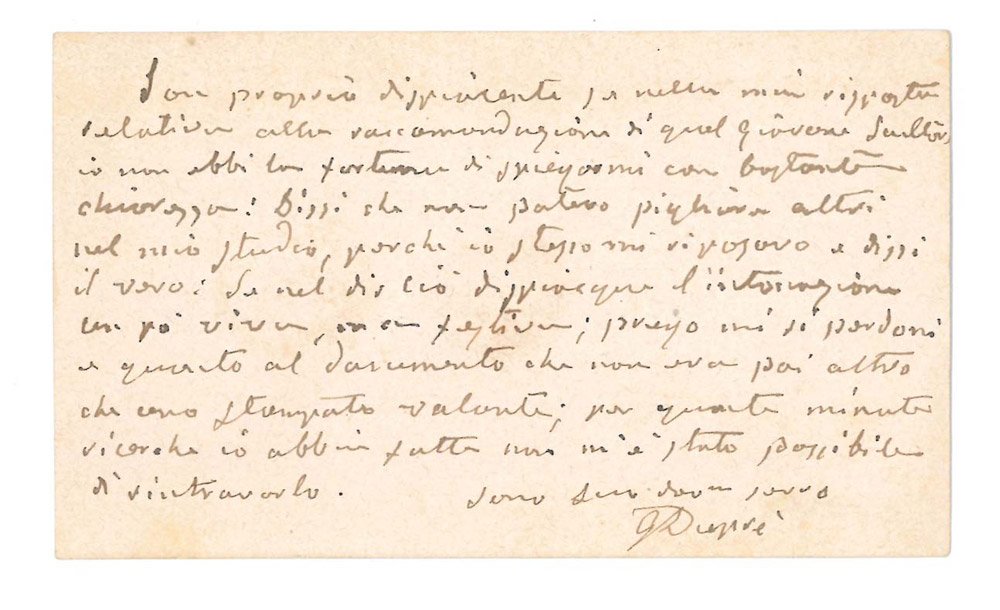 Son proprio dispiacente se nella mia risposta
relativa alla raccomandazione di quel giovane Scultor,
io non ebbi la fortuna di spiegarmi con bastante
chiarezza: Dissi che non potevo pigliare altri
nel mio studio, perché io stesso mi riposavo e dissi
il vero: Se nel dir ciò dispiacque l'intonazione
un po' viva, festiva; prego mi si perdoni
e quanto al documento che non era poi altro
che uno stampato volante; per quante minute
ricerche io abbia fatte non m'è stato possibile
di rintravarlo. Sono Suo devmo servo
GDuprè